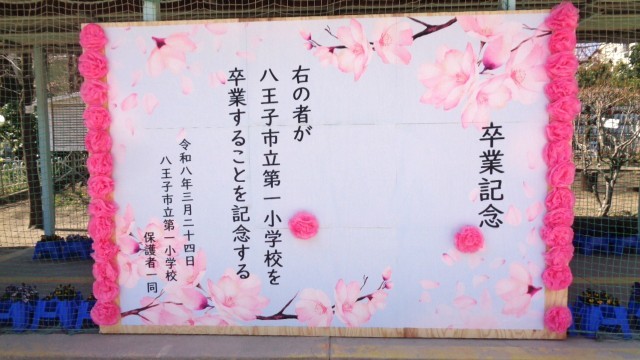 卒業記念
右の者が
八王子市立第一小学校を
卒業することを記念する
令和八年三月二十四日
八王子市立第一小学校
保護者一同